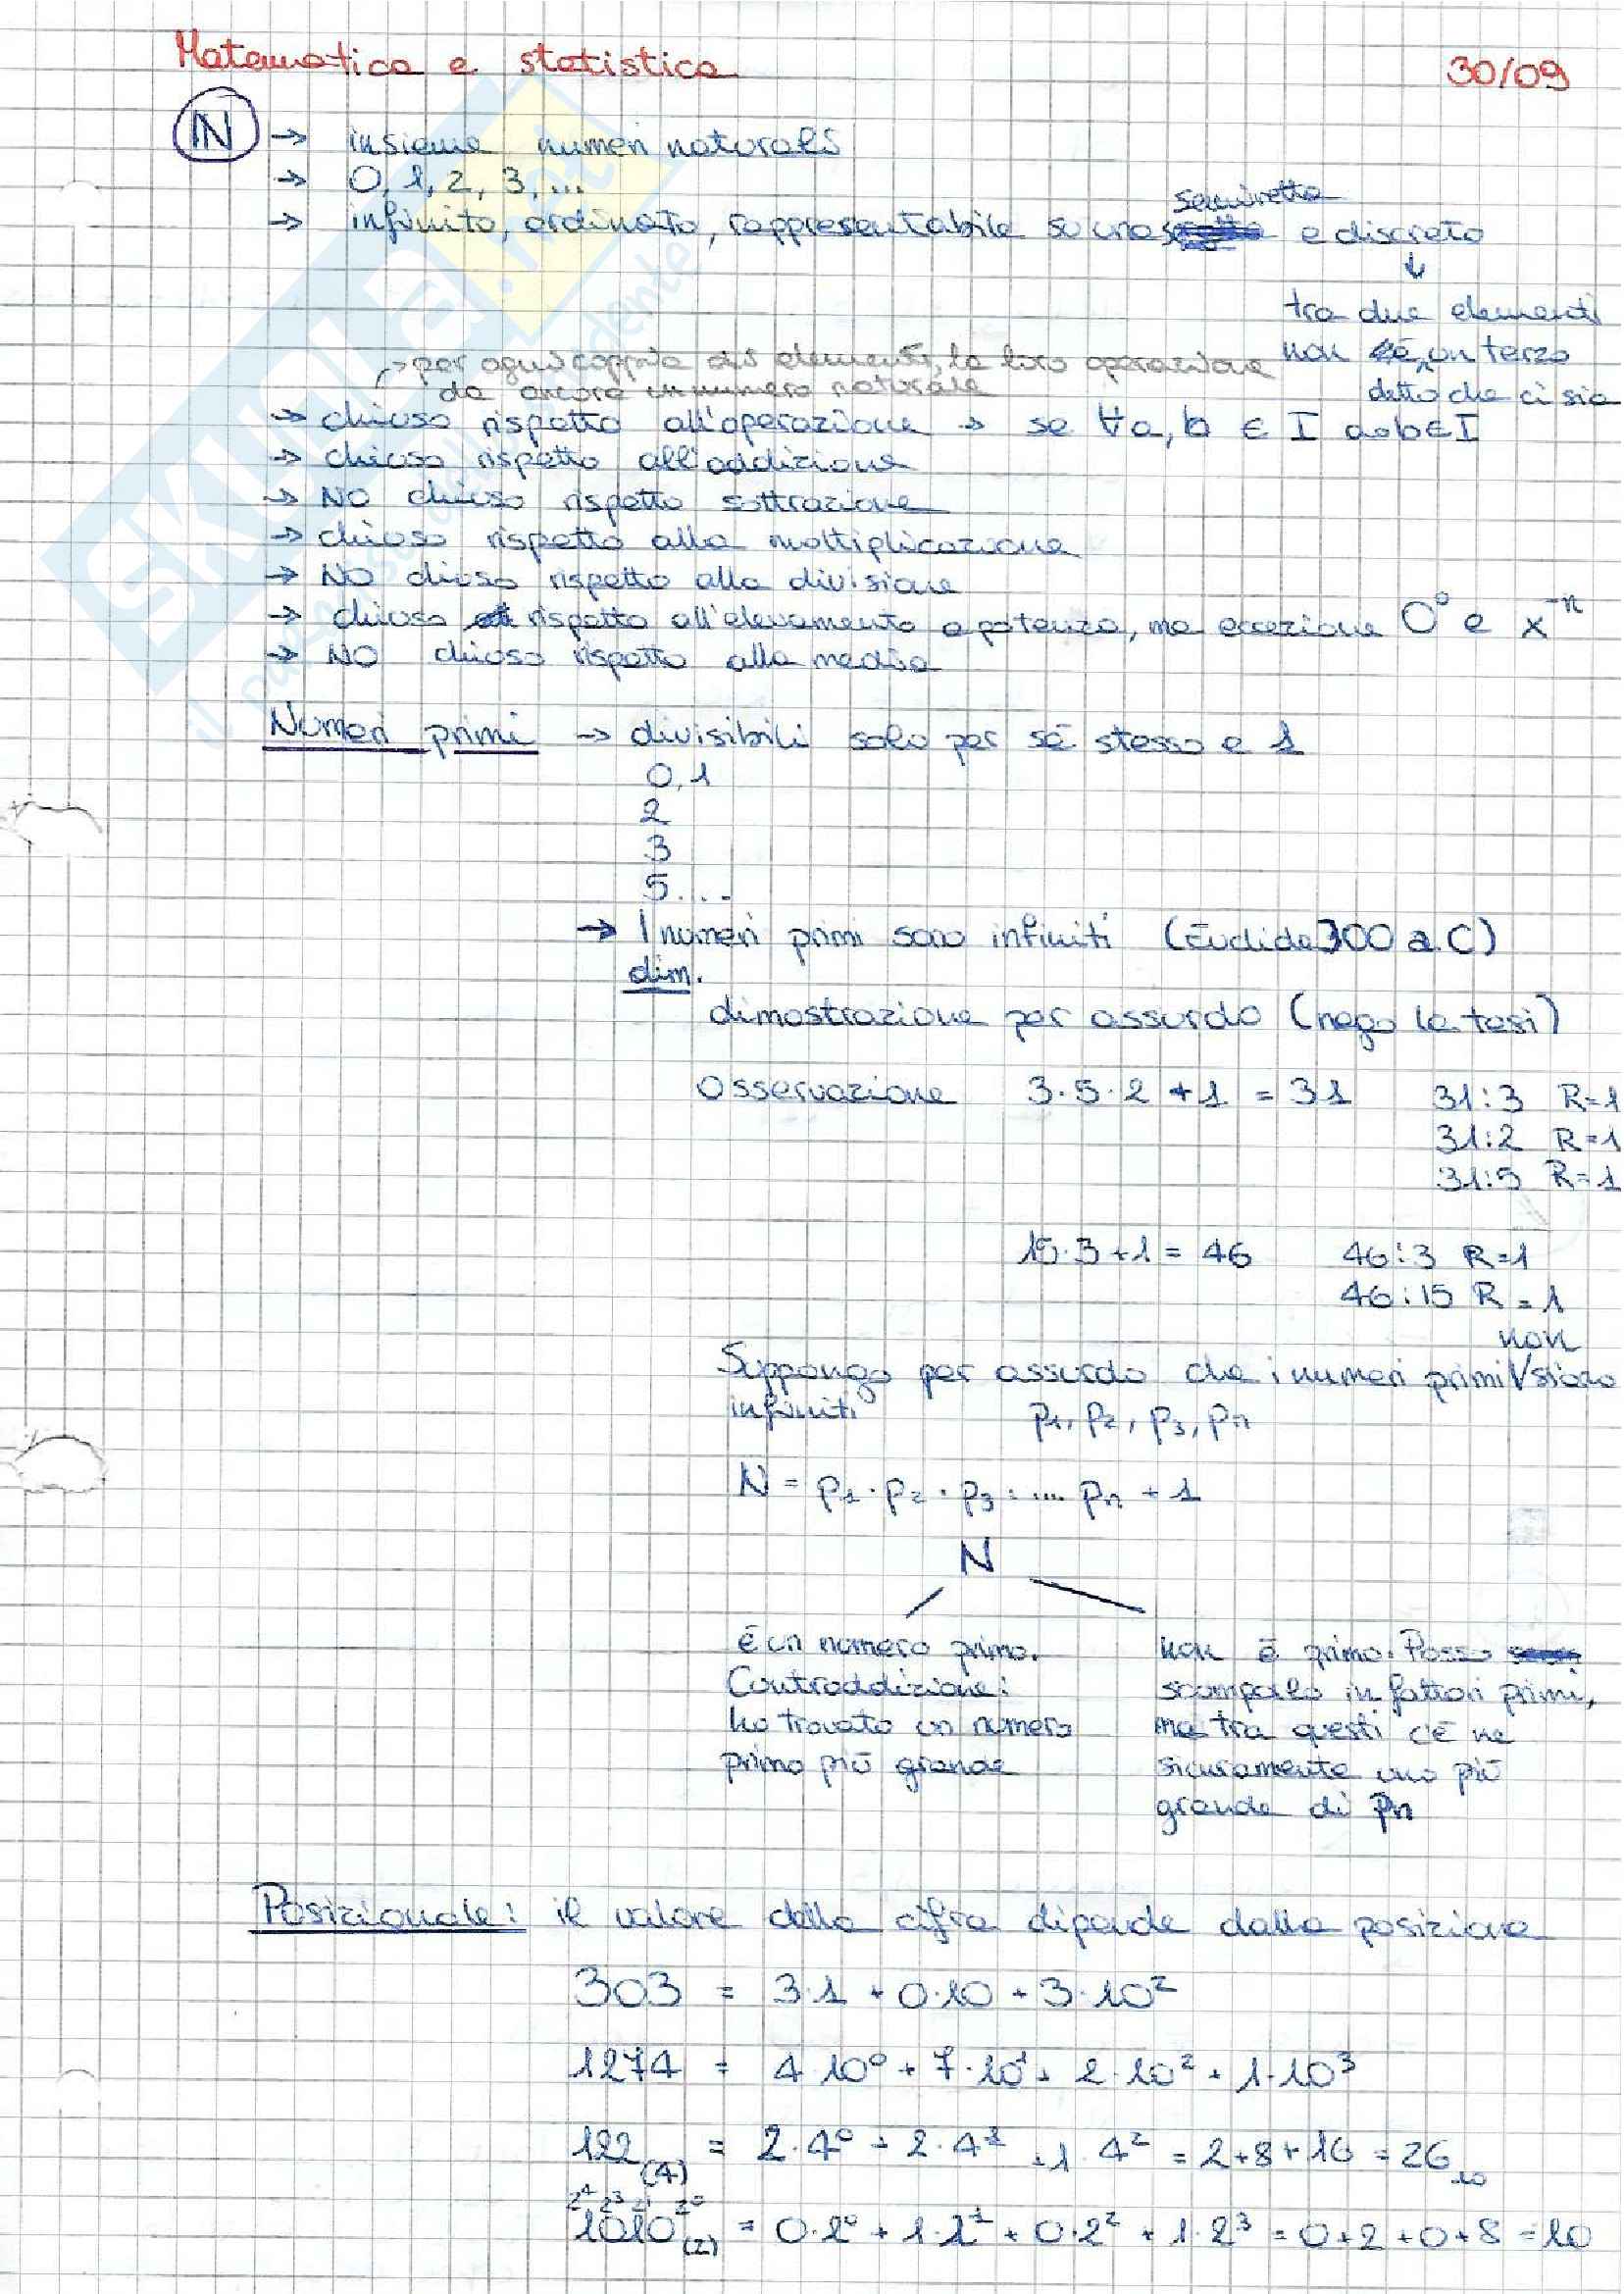 Matematica e statistica 30/09
ℕ → insieme numeri naturali
→ 0, 1, 2, 3, ...
semiretta
→ infinito, ordinato, rappresentabile su una e discreto
↓
tra due elementi
non è un terzo
detto che ci sia
→ per ogni coppia di elementi, la loro operazione
da ancora un numero naturale
→ chiuso rispetto all'operazione → se ∀ a, b ∈ I a∘b ∈ I
→ chiuso rispetto all'addizione
→ NO chiuso rispetto sottrazione
→ chiuso rispetto alla moltiplicazione
→ NO chiuso rispetto alla divisione
→ chiuso rispetto all'elevamento a potenza, ma eccezione 0⁰ e x⁻ⁿ
→ NO chiuso rispetto alla media
Numeri primi → divisibili solo per sé stesso e 1
0, 1
2
3
5...
→ I numeri primi sono infiniti (Euclide 300 a.C)
dim.
dimostrazione per assurdo (nego la tesi)
Osservazione 3·5·2 + 1 = 31 31:3 R=1
31:2 R=1
31:5 R=1
15·3+1 = 46 46:3 R=1
46:15 R=1
non
Suppongo per assurdo che i numeri primi siano
infiniti p₁, p₂, p₃, pₙ
N = p₁ · p₂ · p₃ · ... pₙ + 1
N
È un numero primo.
Contraddizione:
ho trovato un numero
primo più grande
non è primo. Posso
scomporlo in fattori primi,
ma tra questi c'è ne
sicuramente uno più
grande di pₙ
Posizionale: il valore della cifra dipende dalla posizione
303 = 3·1 + 0·10 + 3·10²
1274 = 4·10⁰ + 7·10¹ + 2·10² + 1·10³
122₍₄₎ = 2·4⁰ + 2·4¹ + 1·4² = 2+8+16 = 26₁₀
2⁴ 2³ 2⁰
1010₍₂₎ = 0·2⁰ + 1·2¹ + 0·2² + 1·2³ = 0+2+0+8 = 10
SKUOLA.net